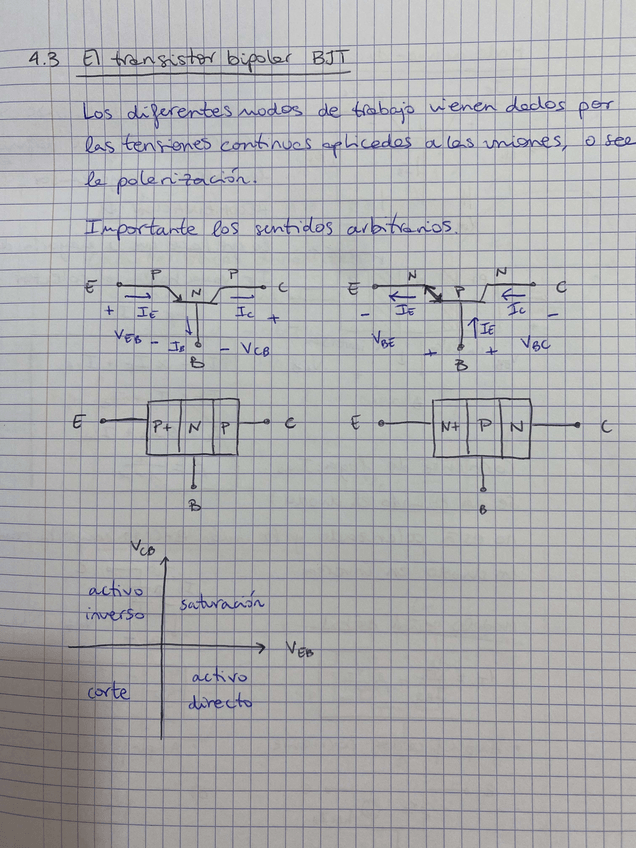 4.3 El transistor bipolar BJT
Los diferentes modos de trabajo vienen dados por
las tensiones continuas aplicadas a las uniones, o sea
la polarización.
Importante los sentidos arbitrarios.
E P N P C
+ IE IC +
VEB - IB - VCB
B
E N P N C
- IE IC -
VBE + IE + VBC
B
E P+ N P C
B
E N+ P N C
B
VCB
activo
inverso
saturación
VEB
corte
activo
directo